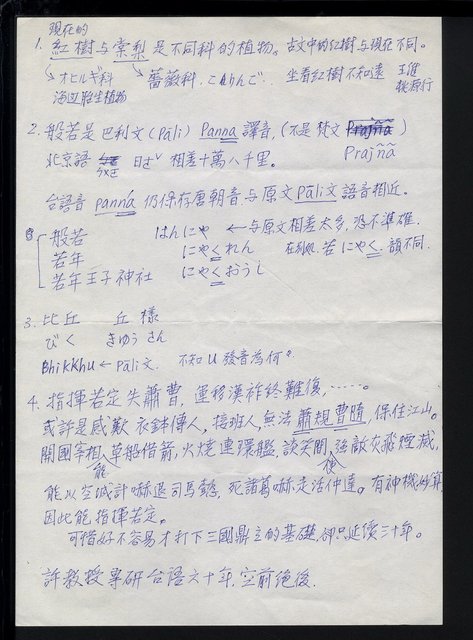 現在的
1. 紅樹与棠梨是不同科的植物。古文中的紅樹与現在不同。
オヒルギ科 薔薇科. こりんご. 坐看紅樹不知遠 王維
海辺胎生植物 桃源行
2. 般若是巴利文 (Pāli) Panna 譯音, (不是梵文 Prajñā )
Prajñā
北京語 ㄖㄜˇ 相差十萬八千里。
ㄅㄛ
台語音 panná 仍保存唐朝音与原文 Pāli文 語音相近.
般若 はんにや ← 与原文相差太多, 恐不準確.
若年 にやくれん 在別処. 若 にやく. 韻不同.
若年王子神社 にやくおうし
3. 比丘 丘様
びく きゆうさん
BhiKKhu ← Pāli文. 不知 u 發音為何。
4. 指揮若定失蕭曹, 運移漢祚終難復, ……。
或許是感歎衣鉢傳人, 接班人, 無法蕭規曹隨, 保住江山。
開國宰相, 能草船借箭, 火燒連環艦, 談笑間, 使強敵灰飛煙滅,
能以空城計嚇退司馬懿, 死諸葛嚇走活仲達。有神機妙算
因此能指揮若定。
可惜好不容易才打下三國鼎立的基礎, 卻只延續三十年。
許教授專研台語六十年, 空前絕後.